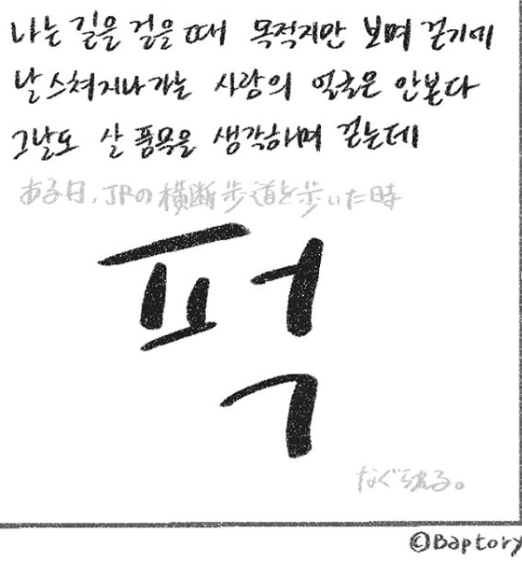 나는 길을 걸을 때 목적지만 보며 걷기에
날 스쳐지나가는 사람의 얼굴은 안본다
그날도 살 품목을 생각하며 걷는데
ある日、JPの横断歩道と歩いた時
퍽
なぐられる。
©Baptory